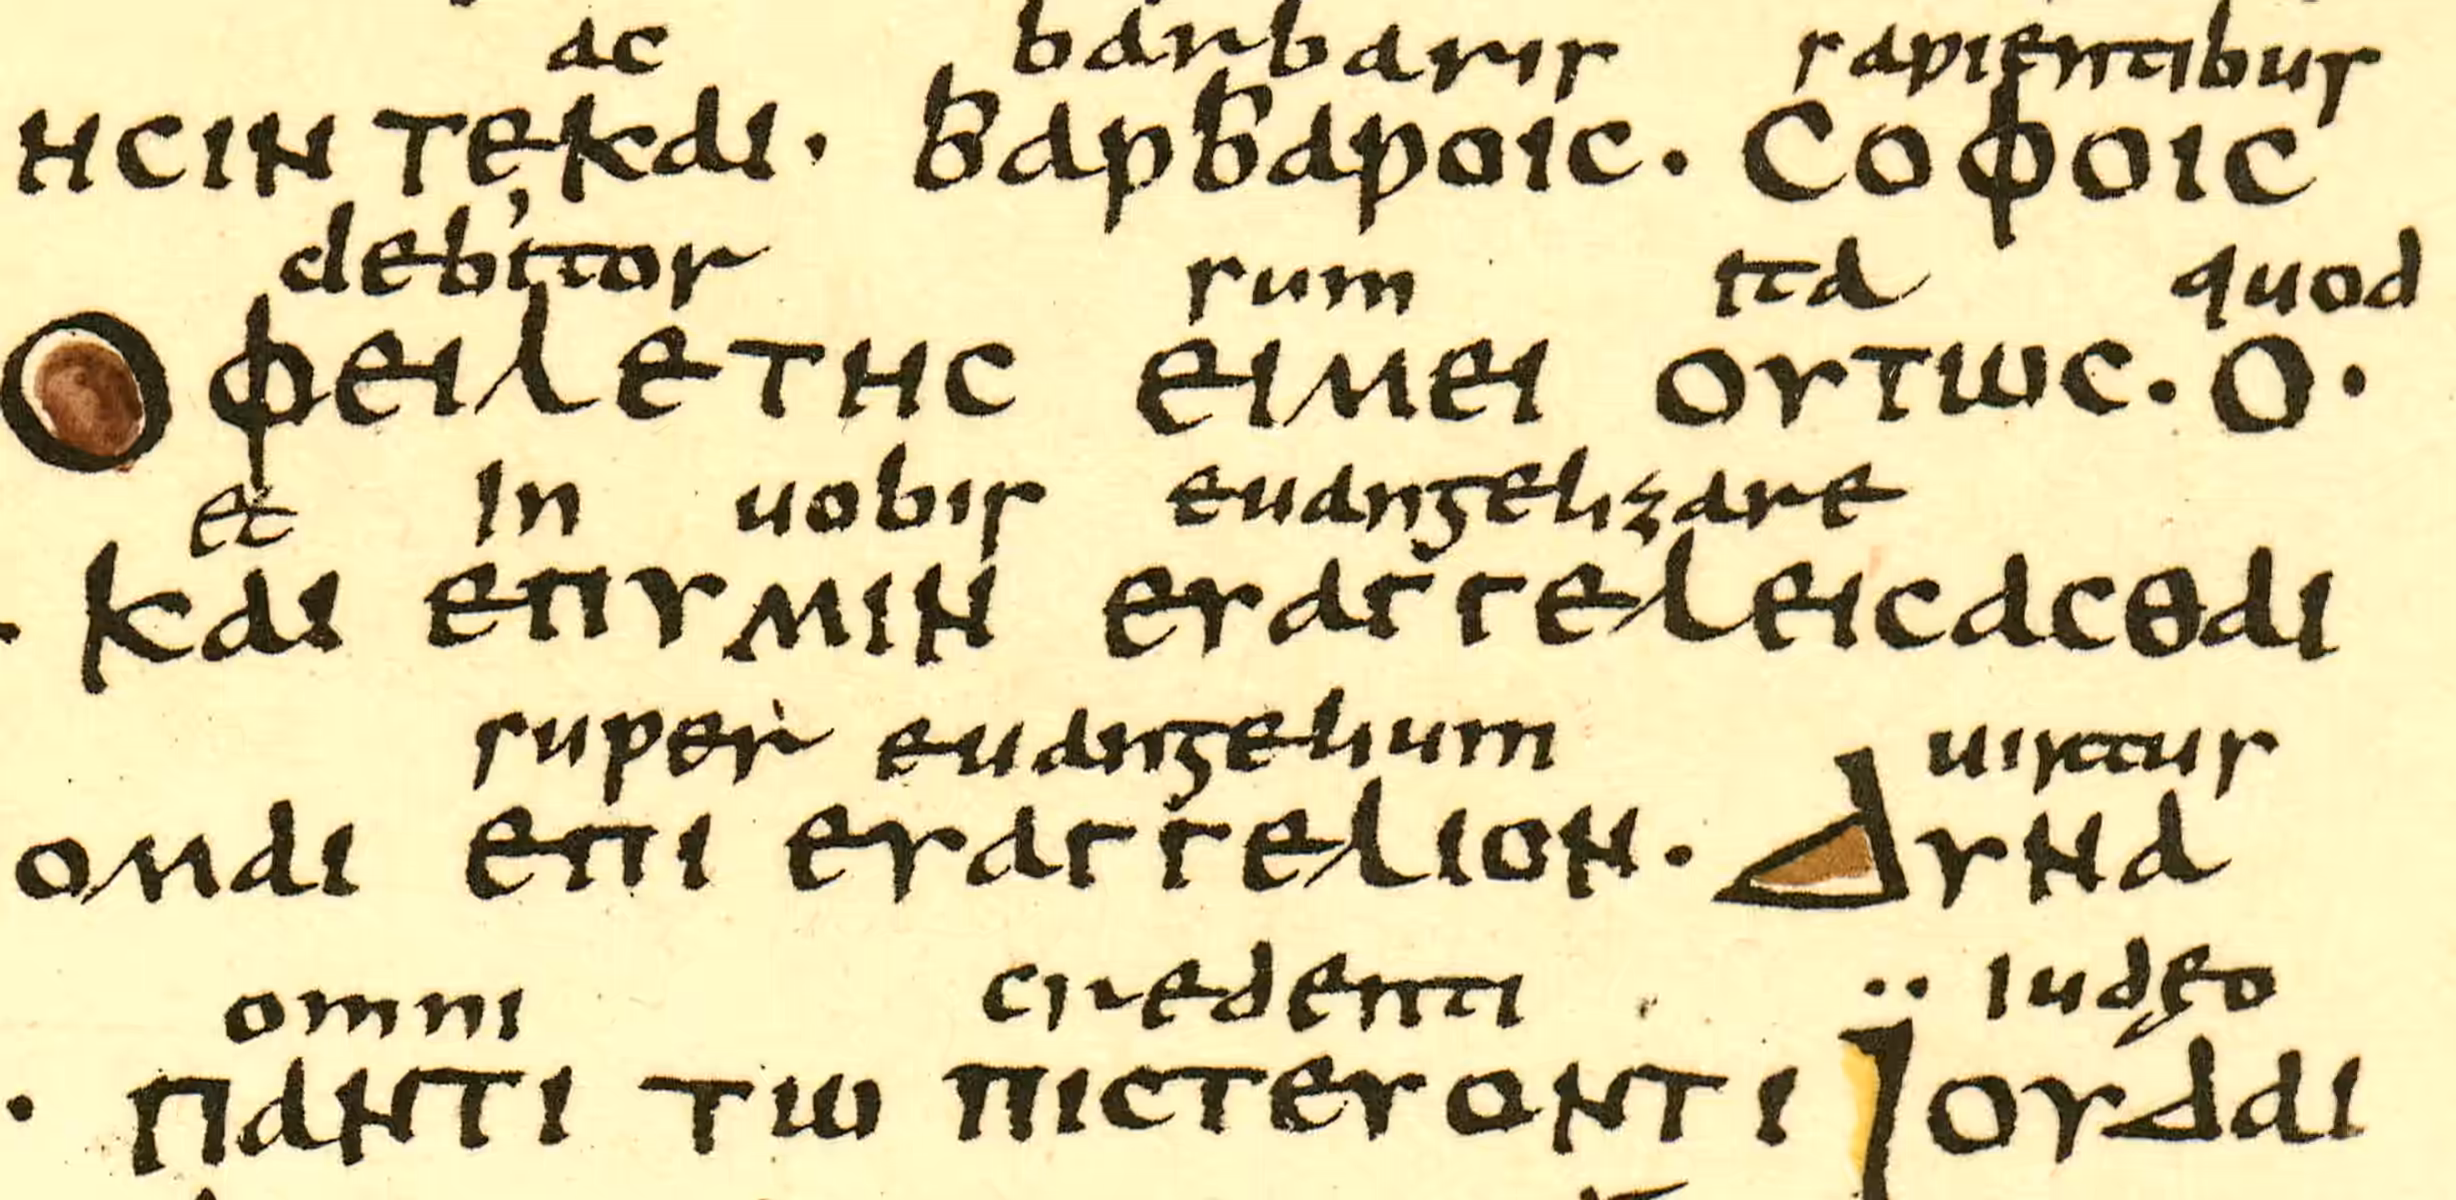 ac barbaris sapientibus
ΗϹΙΝ ΤΕΚΑΙ· ΒΑΡΒΑΡΟΙϹ· ϹΟΦΟΙϹ
debitor sum ita quod
ΟΦΕΙΛΕΤΗϹ ΕΙΜΕΙ ΟΥΤΩϹ· Ο·
et In uobis euangelizare
· ΚΑΙ ΕΠΥΜΙΝ ΕΥΑΓΓΕΛΕΙϹΑϹΘΑΙ
super euangelium uirtus
ΟΜΑΙ ΕΠΙ ΕΥΑΓΓΕΛΙΟΝ· ΔΥΝΑ
omni credenti Iudęo
· ΠΑΝΤΙ ΤΩ ΠΙϹΤΕΥΟΝΤΙ ΪΟΥΔΑΙ